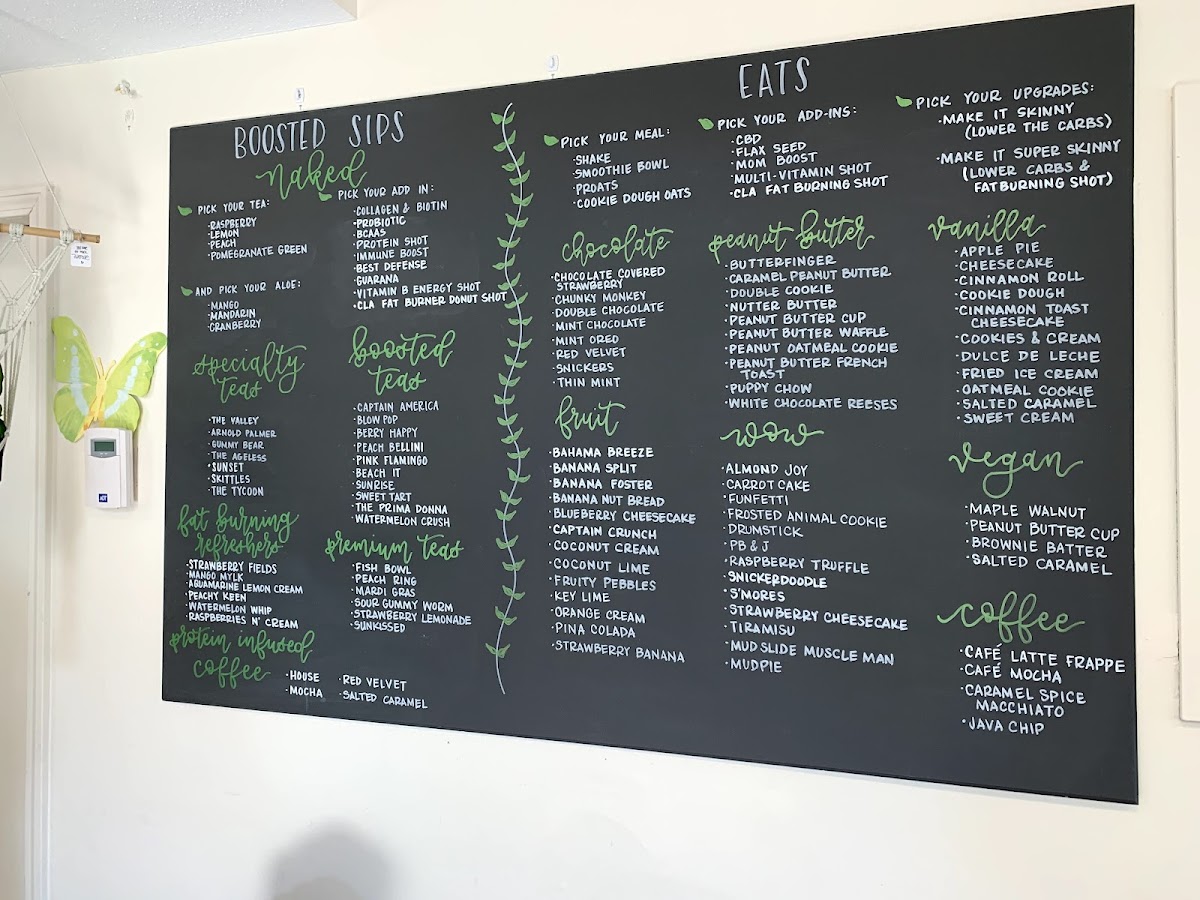 BOOSTED SIPS
naked
PICK YOUR TEA:
·RASPBERRY
·LEMON
·PEACH
·POMEGRANATE GREEN
·AND PICK YOUR ALOE:
·MANGO
·MANDARIN
·CRANBERRY
PICK YOUR ADD IN:
·COLLAGEN & BIOTIN
·PROBIOTIC
·BCAAS
·PROTEIN SHOT
·IMMUNE BOOST
·BEST DEFENSE
·GUARANA
·VITAMIN B ENERGY SHOT
·CLA FAT BURNER DONUT SHOT
specialty
teas
·THE VALLEY
·ARNOLD PALMER
·GUMMY BEAR
·THE AGELESS
·SUNSET
·SKITTLES
·THE TYCOON
boosted
teas
·CAPTAIN AMERICA
·BLOW POP
·BERRY HAPPY
·PEACH BELLINI
·PINK FLAMINGO
·BEACH IT
·SUNRISE
·SWEET TART
·THE PRIMA DONNA
·WATERMELON CRUSH
fat burning
refreshers
·STRAWBERRY FIELDS
·MANGO MYLK
·AQUAMARINE LEMON CREAM
·PEACHY KEEN
·WATERMELON WHIP
·RASPBERRIES N' CREAM
premium teas
·FISH BOWL
·PEACH RING
·MARDI GRAS
·SOUR GUMMY WORM
·STRAWBERRY LEMONADE
·SUNKISSED
protein infused
coffee
·HOUSE
·MOCHA
·RED VELVET
·SALTED CARAMEL
EATS
·PICK YOUR MEAL:
·SHAKE
·SMOOTHIE BOWL
·PROATS
·COOKIE DOUGH OATS
PICK YOUR ADD-INS:
·CBD
·FLAX SEED
·MOM BOOST
·MULTI-VITAMIN SHOT
·CLA FAT BURNING SHOT
PICK YOUR UPGRADES:
·MAKE IT SKINNY
(LOWER THE CARBS)
·MAKE IT SUPER SKINNY
(LOWER CARBS &
FATBURNING SHOT)
chocolate
·CHOCOLATE COVERED
STRAWBERRY
·CHUNKY MONKEY
·DOUBLE CHOCOLATE
·MINT CHOCOLATE
·MINT OREO
·RED VELVET
·SNICKERS
·THIN MINT
fruit
·BAHAMA BREEZE
·BANANA SPLIT
·BANANA FOSTER
·BANANA NUT BREAD
·BLUEBERRY CHEESECAKE
·CAPTAIN CRUNCH
·COCONUT CREAM
·COCONUT LIME
·FRUITY PEBBLES
·KEY LIME
·ORANGE CREAM
·PINA COLADA
·STRAWBERRY BANANA
peanut butter
·BUTTERFINGER
·CARAMEL PEANUT BUTTER
·DOUBLE COOKIE
·NUTTER BUTTER
·PEANUT BUTTER CUP
·PEANUT BUTTER WAFFLE
·PEANUT OATMEAL COOKIE
·PEANUT BUTTER FRENCH
TOAST
·PUPPY CHOW
·WHITE CHOCOLATE REESES
wow
·ALMOND JOY
·CARROT CAKE
·FUNFETTI
·FROSTED ANIMAL COOKIE
·DRUMSTICK
·PB & J
·RASPBERRY TRUFFLE
·SNICKERDOODLE
·S'MORES
·STRAWBERRY CHEESECAKE
·TIRAMISU
·MUDSLIDE MUSCLE MAN
·MUDPIE
vanilla
·APPLE PIE
·CHEESECAKE
·CINNAMON ROLL
·COOKIE DOUGH
·CINNAMON TOAST
CHEESECAKE
·COOKIES & CREAM
·DULCE DE LECHE
·FRIED ICE CREAM
·OATMEAL COOKIE
·SALTED CARAMEL
·SWEET CREAM
vegan
·MAPLE WALNUT
·PEANUT BUTTER CUP
·BROWNIE BATTER
·SALTED CARAMEL
coffee
·CAFÉ LATTE FRAPPE
·CAFÉ MOCHA
·CARAMEL SPICE
MACCHIATO
·JAVA CHIP
ADT